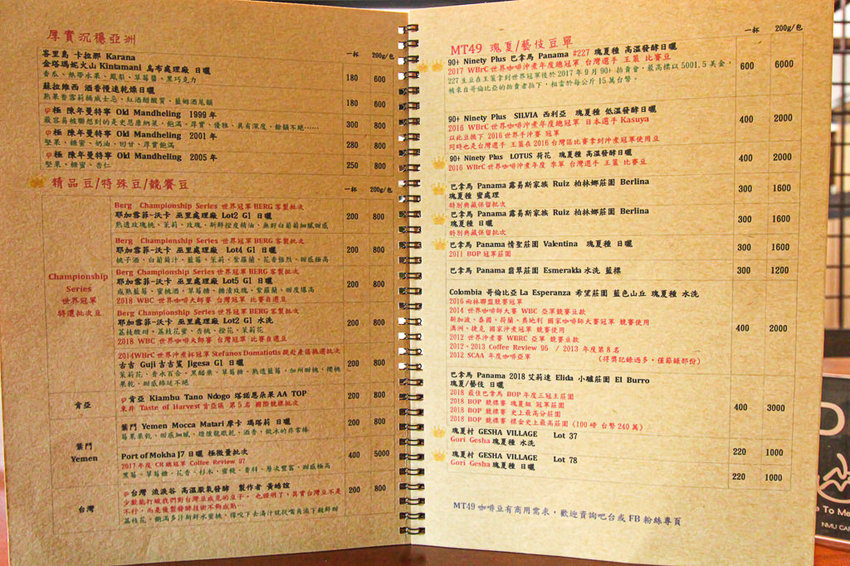 厚實沉穩亞洲
一杯 200g/包
峇里島 卡拉那 Karana
金塔瑪妮火山 Kintamani 烏布處理廠 日曬 180 600
蘇拉維西 酒香慢速乾燥日曬 180 600
極 陳年曼特寧 Old Mandheling 1999 年 300 800
極 陳年曼特寧 Old Mandheling 2001 年
堅果、糖蜜、奶油、回甘、厚實飽滿 280 800
極 陳年曼特寧 Old Mandheling 2005 年
堅果、糖蜜、杏仁 250 800
精品豆/特殊豆/競賽豆
一杯 200g/包
Championship Series 世界冠軍 特選批次豆
Berg Championship Series 世界冠軍 BERG 客製批次
耶加雪菲-沃卡 巫里處理廠 Lot2 G1 日曬 200 800
Berg Championship Series 世界冠軍 BERG 客製批次
耶加雪菲-沃卡 巫里處理廠 Lot4 G1 日曬 200 800
Berg Championship Series 世界冠軍 BERG 客製批次
耶加雪菲-沃卡 巫里處理廠 Lot5 G1 日曬 200 800
2018 WBC 世界咖啡大師賽 台灣冠軍 比賽自選豆
Berg Championship Series 世界冠軍 BERG 客製批次
耶加雪菲-沃卡 巫里處理廠 Lot2 G1 水洗 200 800
2018 WBC 世界咖啡大師賽 台灣冠軍 比賽自選豆
2014WBrC 世界沖煮杯冠軍 Stefanos Domatiotis
古吉 Guji 吉吉莎 Jigesa G1 日曬 200 800
肯亞
肯亞 Kiambu Tano Ndogo 塔諾恩朵茶 AA TOP
東非 Taste of Harvest 肯亞區 第 5 名 國際競標批次 200 800
葉門 Yemen
葉門 Yemen Mocca Matari 摩卡 瑪塔莉 日曬 200 800
Port of Mokha J7 日曬 極微量批次 400 5000
2017 年度 CR 總冠軍 Coffee Review 97
台灣
台灣 流淚谷 高溫厭氧發酵 製作者 黃皓誼 200 800
MT49 瑰夏/藝伎豆單
一杯 200g/包
90+ Ninety Plus 巴拿馬 Panama #227 瑰夏種 高溫發酵日曬 600 6000
2017 WBrC 世界咖啡沖煮年度總冠軍 台灣選手 王策 比賽豆
227 生豆在王策拿到世界冠軍後於 2017 年 9 月 90+ 拍賣會，最高標以 5001.5 美金，
被來自哥倫比亞的拍賣者拍下，相當於每公斤 15 萬台幣。
90+ Ninety Plus SILVIA 西利亞 瑰夏種 低溫發酵日曬 400 2000
2016 WBrC 世界咖啡沖煮年度總冠軍 日本選手 Kasuya
以此豆摘下 2016 世界手沖賽 冠軍
同時也是台灣選手 王策在 2016 台灣區比賽拿到沖煮冠軍使用豆
90+ Ninety Plus LOTUS 荷花 瑰夏種 高溫發酵日曬 400 2000
2016 WBrC 世界咖啡沖煮年度 季軍 台灣選手 王策 比賽豆
巴拿馬 Panama 露易斯家族 Ruiz 柏林娜莊園 Berlina
瑰夏種 蜜處理 300 1600
特別典藏保留批次
巴拿馬 Panama 露易斯家族 Ruiz 柏林娜莊園 Berlina
瑰夏種 日曬 300 1600
特別典藏保留批次
巴拿馬 Panama 情聖莊園 Valentina 瑰夏種 日曬 300 1600
2011 BOP 冠軍莊園
巴拿馬 Panama 翡翠莊園 Esmerakda 水洗 藍標 300 1200
Colombia 哥倫比亞 La Esperanza 希望莊園 藍色山丘 瑰夏種 水洗 400 2000
2016 雨林聯盟競賽冠軍
2014 世界咖啡師大賽 WBC 亞軍競賽豆款
新加波、泰國、荷蘭、奧地利 國家咖啡師大賽冠軍 競賽使用
澳洲、捷克 國家沖煮冠軍 競賽使用
2012 世界咖啡大賽 WERC 亞軍 競賽豆款
2012、2013 Coffee Review 95 / 2013 年度第 8 名
2012 SCAA 年度咖啡亞軍 (得獎記錄過多，僅節錄部份)
巴拿馬 Panama 2018 艾莉達 Elida 小驢莊園 El Burro
瑰夏/藝伎 日曬 400 3000
2018 最佳巴拿馬 BOP 年度三冠王莊園
2018 BOP 競標賽 瑰夏組 冠軍莊園
2018 BOP 競標賽 史上最高分莊園
2018 BOP 競標賽 標金史上最高莊園 (100 磅 台幣 240 萬)
瑰夏村 GESHA VILLAGE Lot 37
Gori Gesha 瑰夏種 水洗 220 1000
瑰夏村 GESHA VILLAGE Lot 78
Gori Gesha 瑰夏種 日曬 220 1000
MT49 咖啡豆有商用需求，歡迎賓詢吧台或 FB 粉絲專頁